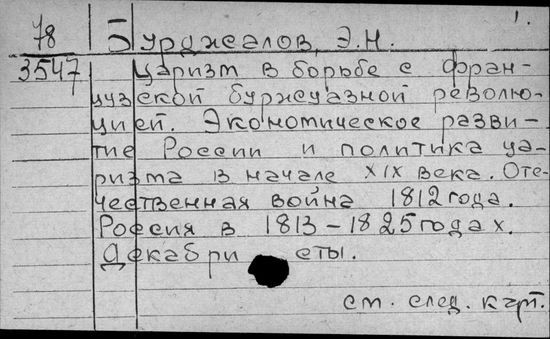 1.
78 Бурджалов, Э.Н.
3547 Царизм в борьбе с фран-
цузской буржуазной револю-
цией. Экономическое разви-
тие России и политика ца-
ризма в начале XIX века. Оте-
чественная война 1812 года.
Россия в 1813-1825 годах.
Декабристы.
см. след. карт.